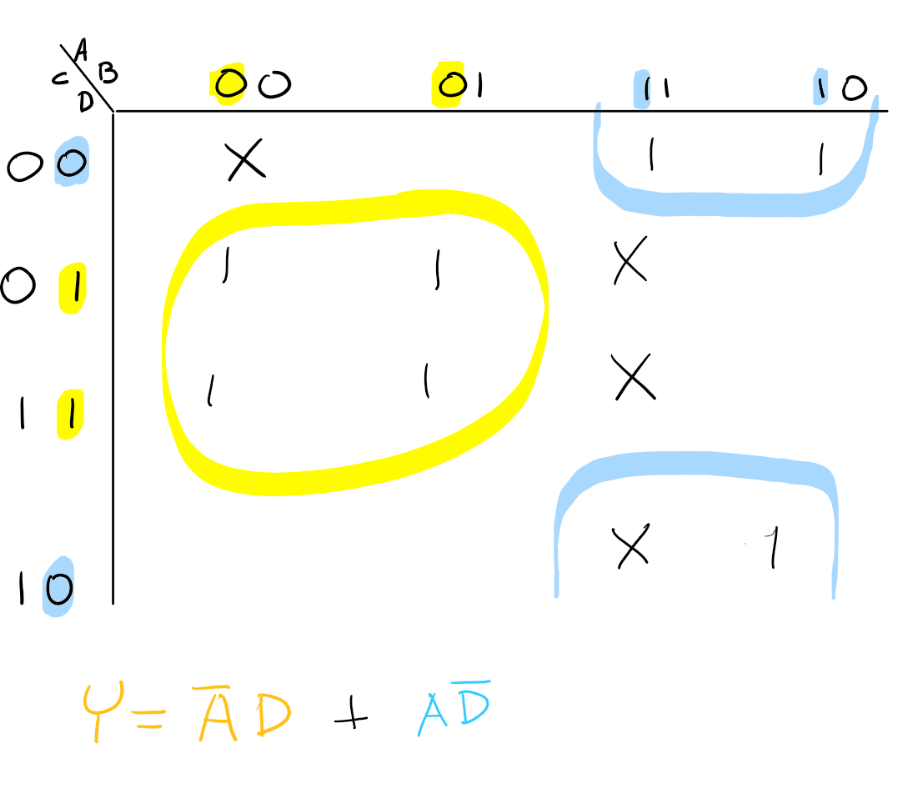 A
C B
D
00 01 11 10
00 X 1 1
01 1 1 X
11 1 1 X
10 X 1
Y = A̅D + AD̅